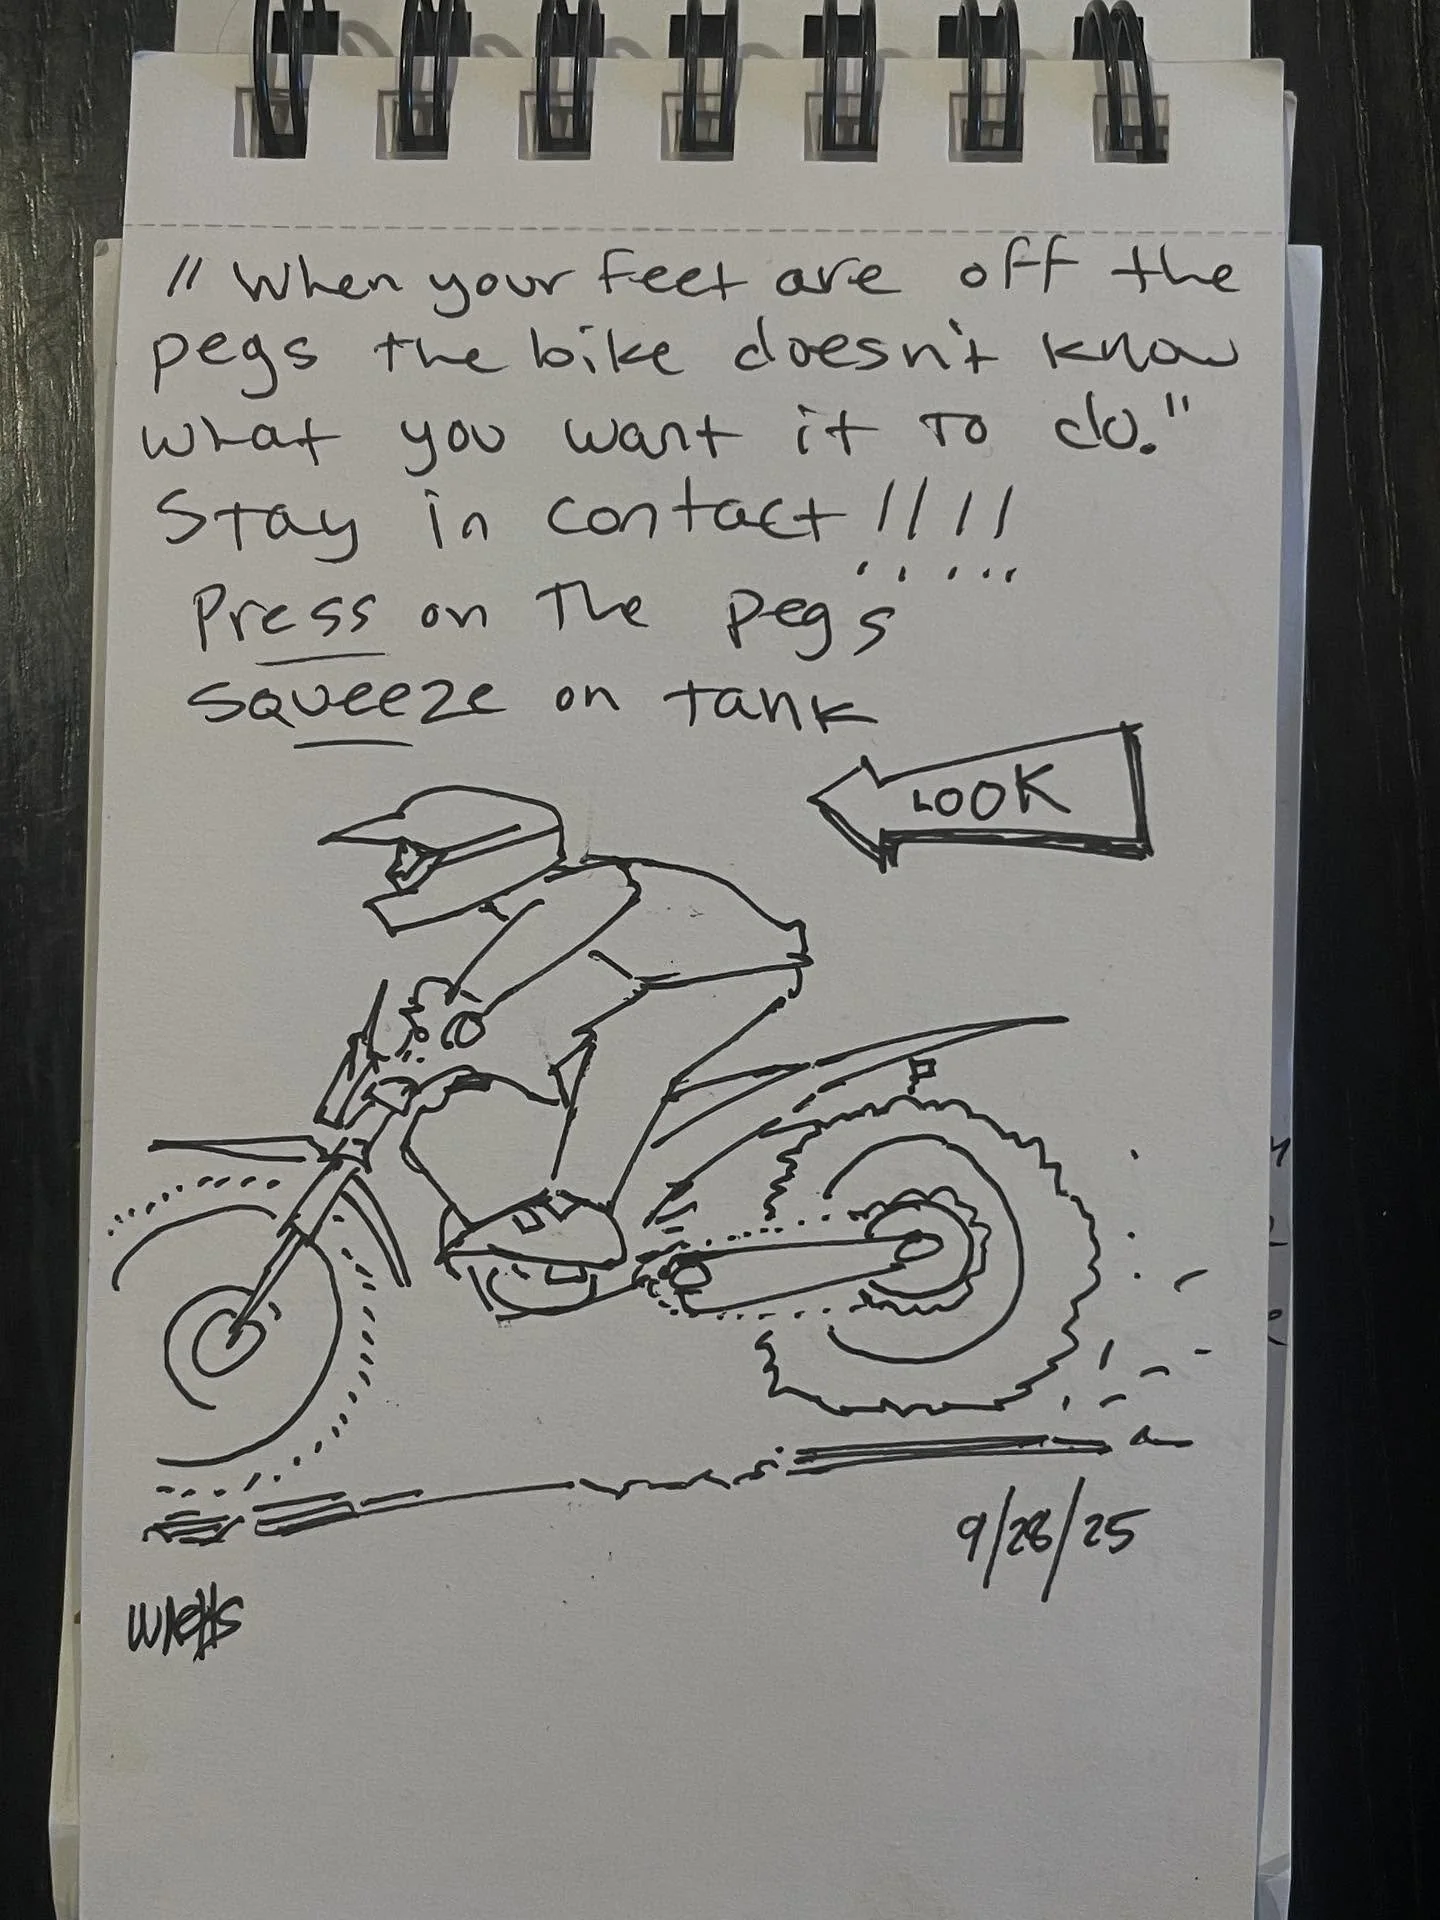 "When your feet are off the
pegs the bike doesn't know
what you want it to do."
Stay in contact!!!!
Press on the pegs
squeeze on tank
LOOK
9/28/25